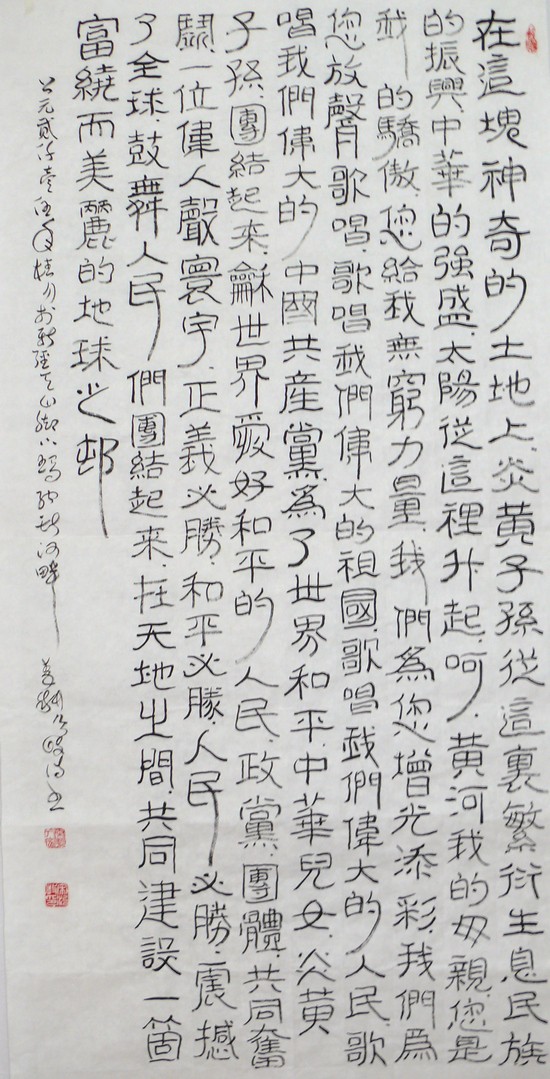 在這塊神奇的土地上,炎黃子孫從這裏繁衍生息,民族
的振興,中華的強盛,太陽從這裡升起,呵,黃河我的母親,您是
我的驕傲,您給我無窮力量,我們為您增光添彩,我們為
您放聲歌唱,歌唱我們偉大的祖國,歌唱我們偉大的人民,歌
唱我們偉大的中國共產黨,為了世界和平,中華兒女,炎黃
子孫,團結起來,龢世界愛好和平的人民,政黨,團體,共同奮
鬪,一位偉人聲寰宇,正義必勝,和平必勝,人民必勝,震撼
了全球,鼓舞人民們團結起來,在天地之間,共同建設一箇
富繞而美麗的地球之邨
公元貳仟壹伍年